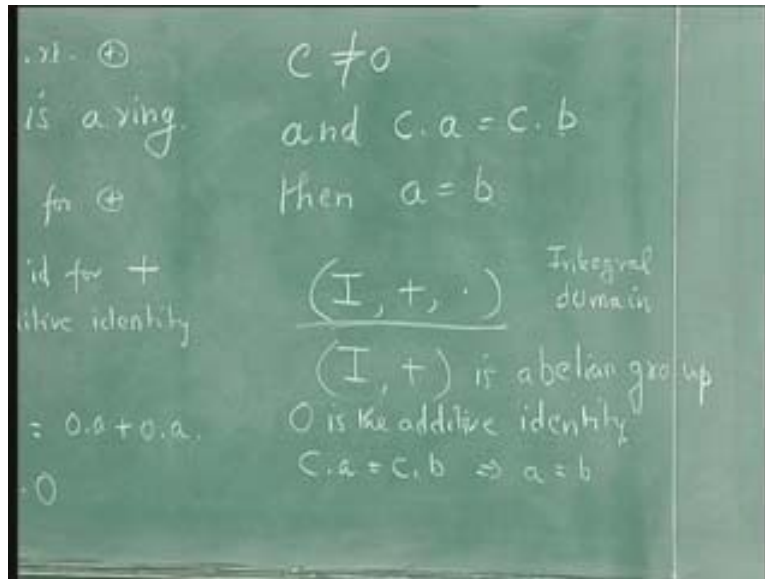 .r.t. ⊕
is a ring.
for ⊕
id for +
itive identity
= 0.a + 0.a.
.0
C ≠ 0
and c.a = c.b
then a = b
(I, +, ·) Integral
domain
(I, +) is abelian group
0 is the additive identity
C.a = C.b ⇒ a = b